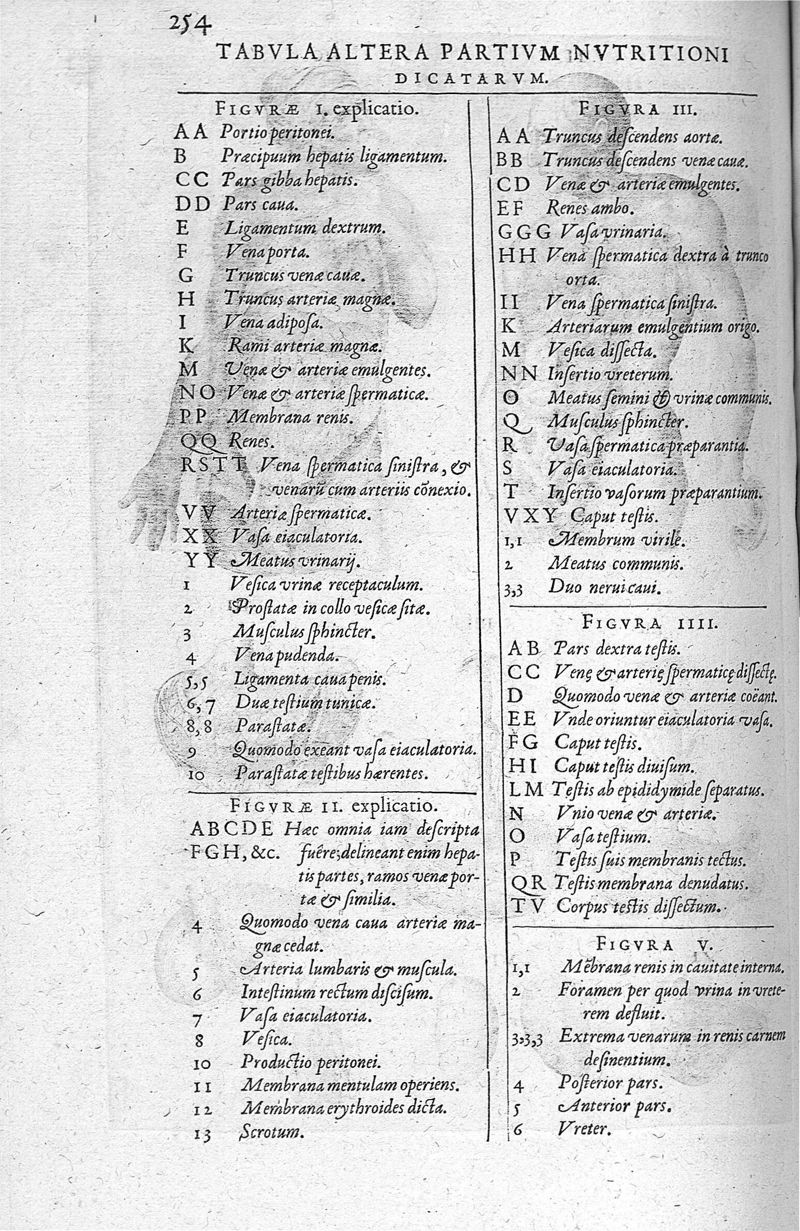 254
TABVLA ALTERA PARTIVM NVTRITIONI
DICATARVM.
FIGVRÆ I. explicatio.
A A Portio peritonei.
B Præcipuum hepatis ligamentum.
C C Pars gibba hepatis.
D D Pars caua.
E Ligamentum dextrum.
F Vena porta.
G Truncus venæ cauæ.
H Truncus arteriæ magnæ.
I Vena adiposa.
K Rami arteriæ magnæ.
M Venæ & arteriæ emulgentes.
N O Venæ & arteriæ ſpermaticæ.
P P Membrana renis.
QQ Renes.
R S T T Vena ſpermatica ſiniſtra, &
venarū cum arteriis cōnexio.
V V Arteriæ ſpermaticæ.
X X Vaſa eiaculatoria.
Y Y Meatus vrinarij.
1 Veſica vrinæ receptaculum.
2 Proſtatæ in collo veſicæ ſitæ.
3 Muſculus ſphincter.
4 Vena pudenda.
5,5 Ligamenta caua penis.
6,7 Duæ teſtium tunicæ.
8,8 Paraſtatæ.
9 Quomodo exeant vaſa eiaculatoria.
10 Paraſtatæ teſtibus hærentes.
FIGVRÆ II. explicatio.
A B C D E Hæc omnia iam deſcripta
F G H, &c. fuêre; delineant enim hepa-
tis partes, ramos venæ por-
tæ & ſimilia.
4 Quomodo vena caua arteriæ ma-
gnæ cedat.
5 Arteria lumbaris & muſcula.
6 Inteſtinum rectum diſciſum.
7 Vaſa eiaculatoria.
8 Veſica.
10 Productio peritonei.
11 Membrana mentulam operiens.
12 Membrana erythroides dicta.
13 Scrotum.
FIGVRA III.
A A Truncus deſcendens aortæ.
B B Truncus deſcendens venæ cauæ.
C D Venæ & arteriæ emulgentes.
E F Renes ambo.
G G G Vaſa vrinaria.
H H Vena ſpermatica dextra à trunco
orta.
I I Vena ſpermatica ſiniſtra.
K Arteriarum emulgentium origo.
M Veſica diſſecta.
N N Inſertio vreterum.
O Meatus ſemini & vrinæ communis.
Q Muſculus ſphincter.
R Vaſa ſpermatica præparantia.
S Vaſa eiaculatoria.
T Inſertio vaſorum præparantium.
V X Y Caput teſtis.
1,1 Membrum virile.
2 Meatus communis.
3,3 Duo nerui caui.
FIGVRA IIII.
A B Pars dextra teſtis.
C C Venę & arterię ſpermaticę diſſectę.
D Quomodo venæ & arteriæ coëant.
E E Vnde oriuntur eiaculatoria vaſa.
F G Caput teſtis.
H I Caput teſtis diuiſum.
L M Teſtis ab epididymide ſeparatus.
N Vnio venæ & arteriæ.
O Vaſa teſtium.
P Teſtis ſuis membranis tectus.
Q R Teſtis membrana denudatus.
T V Corpus teſtis diſſectum.
FIGVRA V.
1,1 Mēbrana renis in cauitate interna.
2 Foramen per quod vrina in vrete-
rem defluit.
3,3,3 Extrema venarum in renis carnem
deſinentium.
4 Poſterior pars.
5 Anterior pars.
6 Vreter.